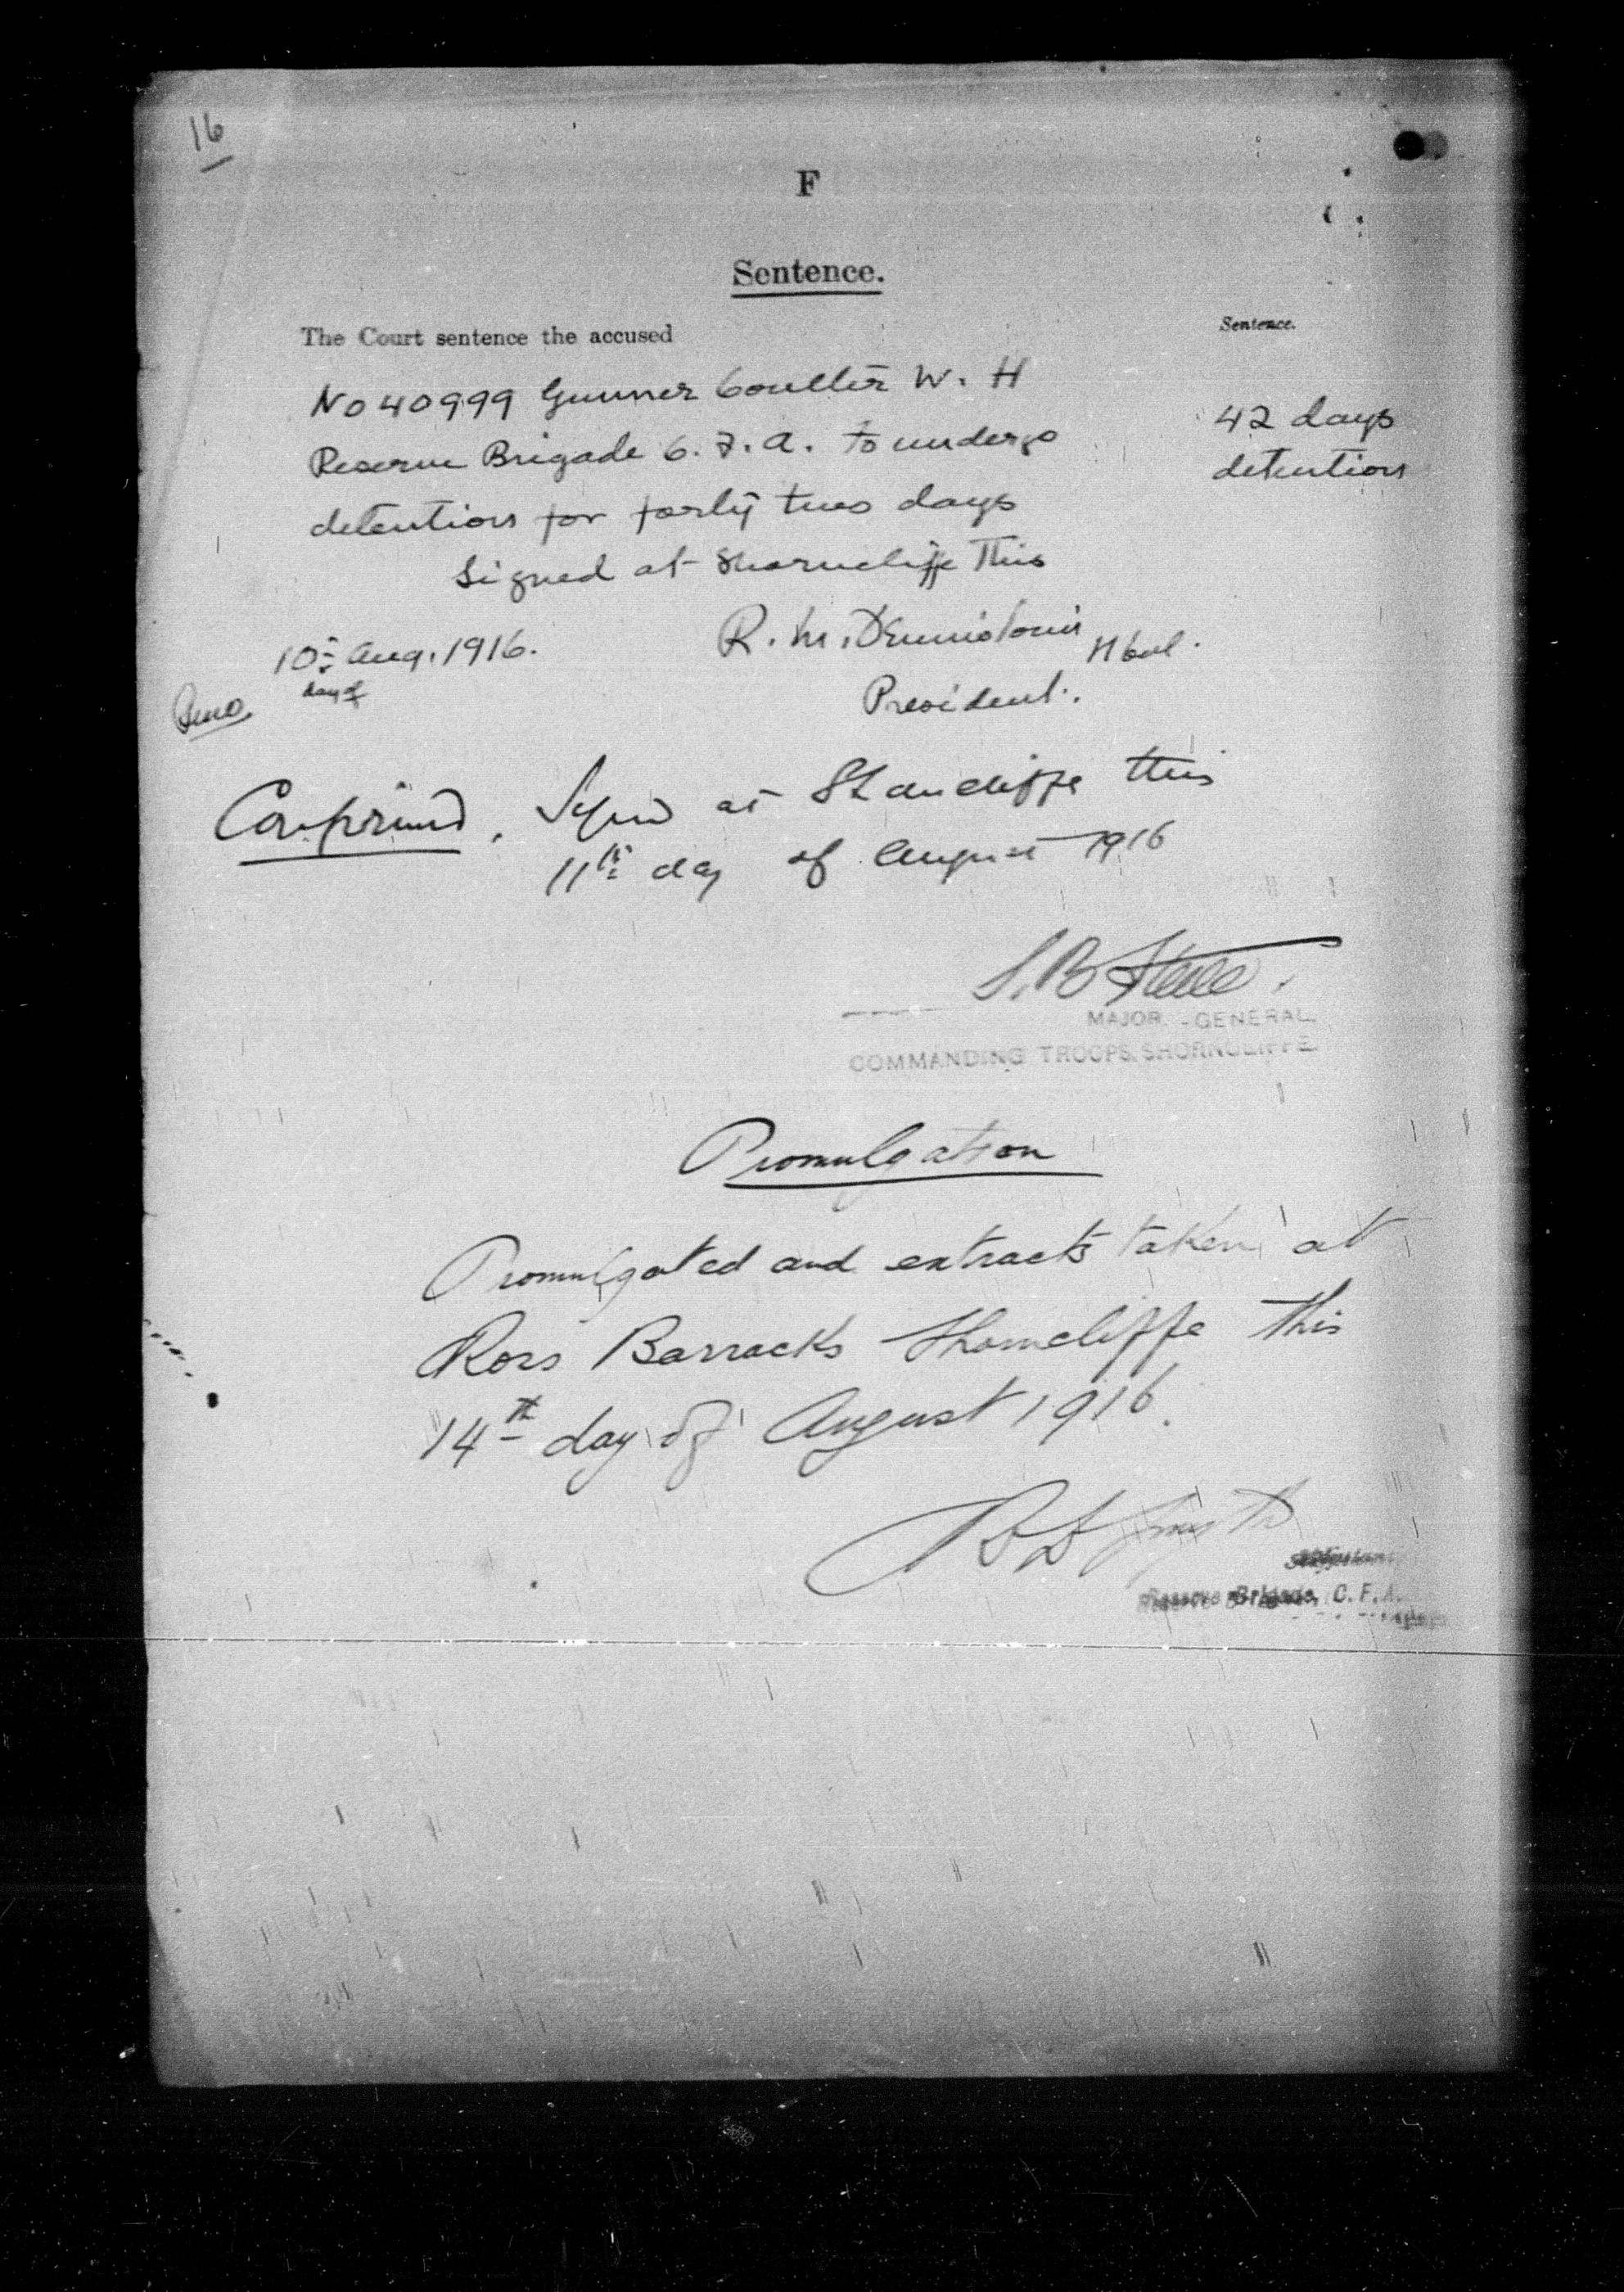 16
F
Sentence.
The Court sentence the accused
Sentence.
No 40999 Gunner Coulter W. H
Reserve Brigade C. F. A. to undergo
detention for forty two days
42 days
detention
Signed at Shorncliffe This
10th Aug. 1916.
day of
R. M. Dennistoun
President.
Confirmed. Signed at Shorncliffe this
11th day of August 1916
S. B. Steele.
MAJOR - GENERAL
COMMANDING TROOPS, SHORNCLIFFE
Promulgation
Promulgated and extracts taken at
Ross Barracks Shorncliffe this
14th day of August 1916.
Smyth
Adjutant
Reserve Brigade, C. F. A.